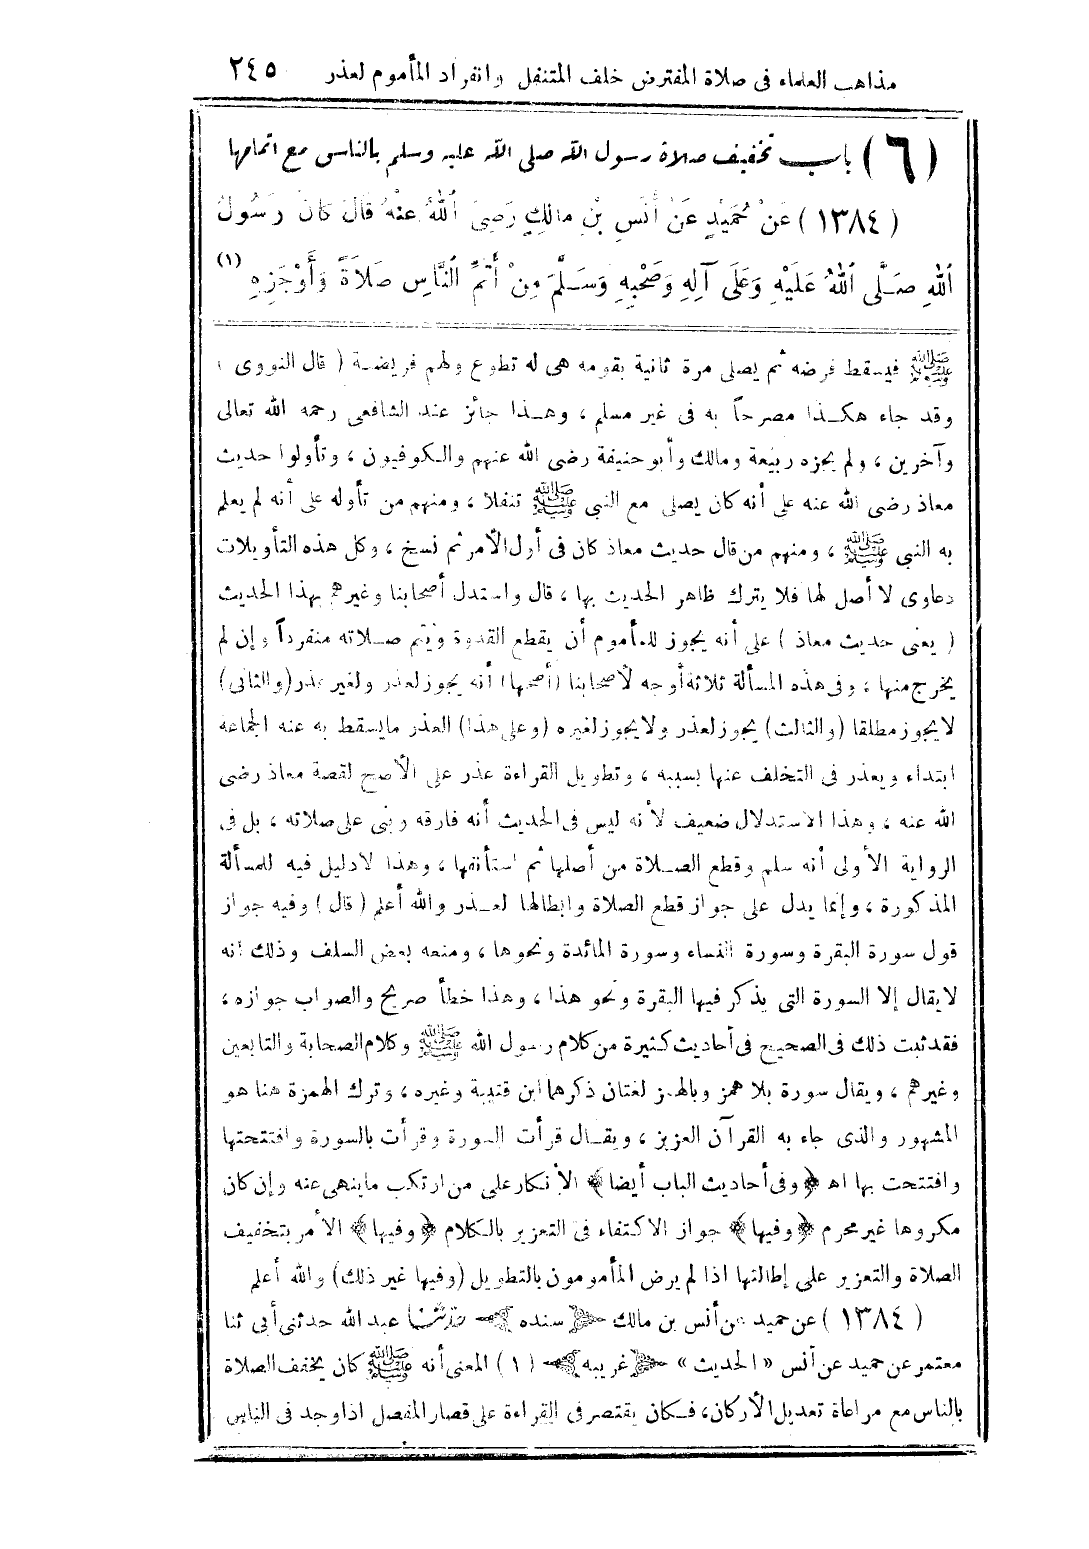 مذاهب العلماء فى صلاة المفترض خلف المتنفل وانفراد المأموم لعذر ٢٤٥
(٦) باب تخفيف صلاة رسول الله صلى الله عليه وسلم بالناس مع اتمامها
(١٣٨٤) عَنْ حُمَيْدٍ عَنْ أَنَسِ بْنِ مالِكٍ رَضِىَ اللهُ عَنْهُ قَالَ كَانَ رَسُولُ
اللهِ صَلَّى اللهُ عَلَيْهِ وَعَلَى آلِهِ وَصَحْبِهِ وَسَلَّمَ مِنْ أَتَمِّ النَّاسِ صَلَاةً وَأَوْجَزِهِ (١)
ﷺ فيسقط فرضه ثم يصلى مرة ثانية بقومه هى له تطوع ولهم فريضة ( قال النووى )
وقد جاء هكذا مصرحاً به فى غير مسلم ، وهذا جائز عند الشافعى رحمه الله تعالى
وآخرين ، ولم يجزه ربيعة ومالك وأبو حنيفة رضى الله عنهم والكوفيون ، وتأولوا حديث
معاذ رضى الله عنه على أنه كان يصلى مع النبى ﷺ تنفلا ، ومنهم من تأوله على أنه لم يعلم
به النبى ﷺ ، ومنهم من قال حديث معاذ كان فى أول الأمر ثم نسخ ، وكل هذه التأويلات
دعاوى لا أصل لها فلا يترك ظاهر الحديث بها ، قال واستدل أصحابنا وغيرهم بهذا الحديث
( يعنى حديث معاذ ) على أنه يجوز للمأموم أن يقطع القدوة ويتم صلاته منفرداً وإن لم
يخرج منها ، وفى هذه المسألة ثلاثة أوجه لأصحابنا (أصحها) أنه يجوز لعذر ولغير عذر (والثانى)
لا يجوز مطلقا (والثالث) يجوز لعذر ولا يجوز لغيره (وعلى هذا) العذر ما يسقط به عنه الجماعة
ابتداء ويعذر فى التخلف عنها بسببه ، وتطويل القراءة عذر على الأصح لقصة معاذ رضى
الله عنه ، وهذا الاستدلال ضعيف لأنه ليس فى الحديث أنه فارقه وبنى على صلاته ، بل فى
الرواية الأولى أنه سلم وقطع الصلاة من أصلها ثم استأنفها ، وهذا لا دليل فيه للمسألة
المذكورة ، وإنما يدل على جواز قطع الصلاة وابطالها لعذر والله أعلم ( قال ) وفيه جواز
قول سورة البقرة وسورة النساء وسورة المائدة ونحوها ، ومنعه بعض السلف وذلك انه
لا يقال إلا السورة التى يذكر فيها البقرة ونحو هذا ، وهذا خطأ صريح والصواب جوازه ،
فقد ثبت ذلك فى الصحيح فى أحاديث كثيرة من كلام رسول الله ﷺ وكلام الصحابة والتابعين
وغيرهم ، ويقال سورة بلا همز وبالهمز لغتان ذكرهما ابن قتيبة وغيره ، وترك الهمزة هنا هو
المشهور والذى جاء به القرآن العزيز ، ويقال قرأت السورة وقرأت بالسورة وافتتحتها
وافتتحت بها اه ﴿وفى أحاديث الباب أيضا﴾ الأنكار على من ارتكب ما ينهى عنه وإن كان
مكروها غير محرم ﴿وفيها﴾ جواز الاكتفاء فى التعزير بالكلام ﴿وفيها﴾ الأمر بتخفيف
الصلاة والتعزير على إطالتها اذا لم يرض المأمومون بالتطويل (وفيها غير ذلك) والله أعلم
( ١٣٨٤ ) عن حميد عن أنس بن مالك ﴿سنده﴾ حدثنا عبد الله حدثنى أبى ثنا
معتمر عن حميد عن أنس «الحديث» ﴿غريبه﴾ (١) المعنى أنه ﷺ كان يخفف الصلاة
بالناس مع مراعاة تعديل الأركان، فكان يقتصر فى القراءة على قصار المفصل اذا وجد فى الناس